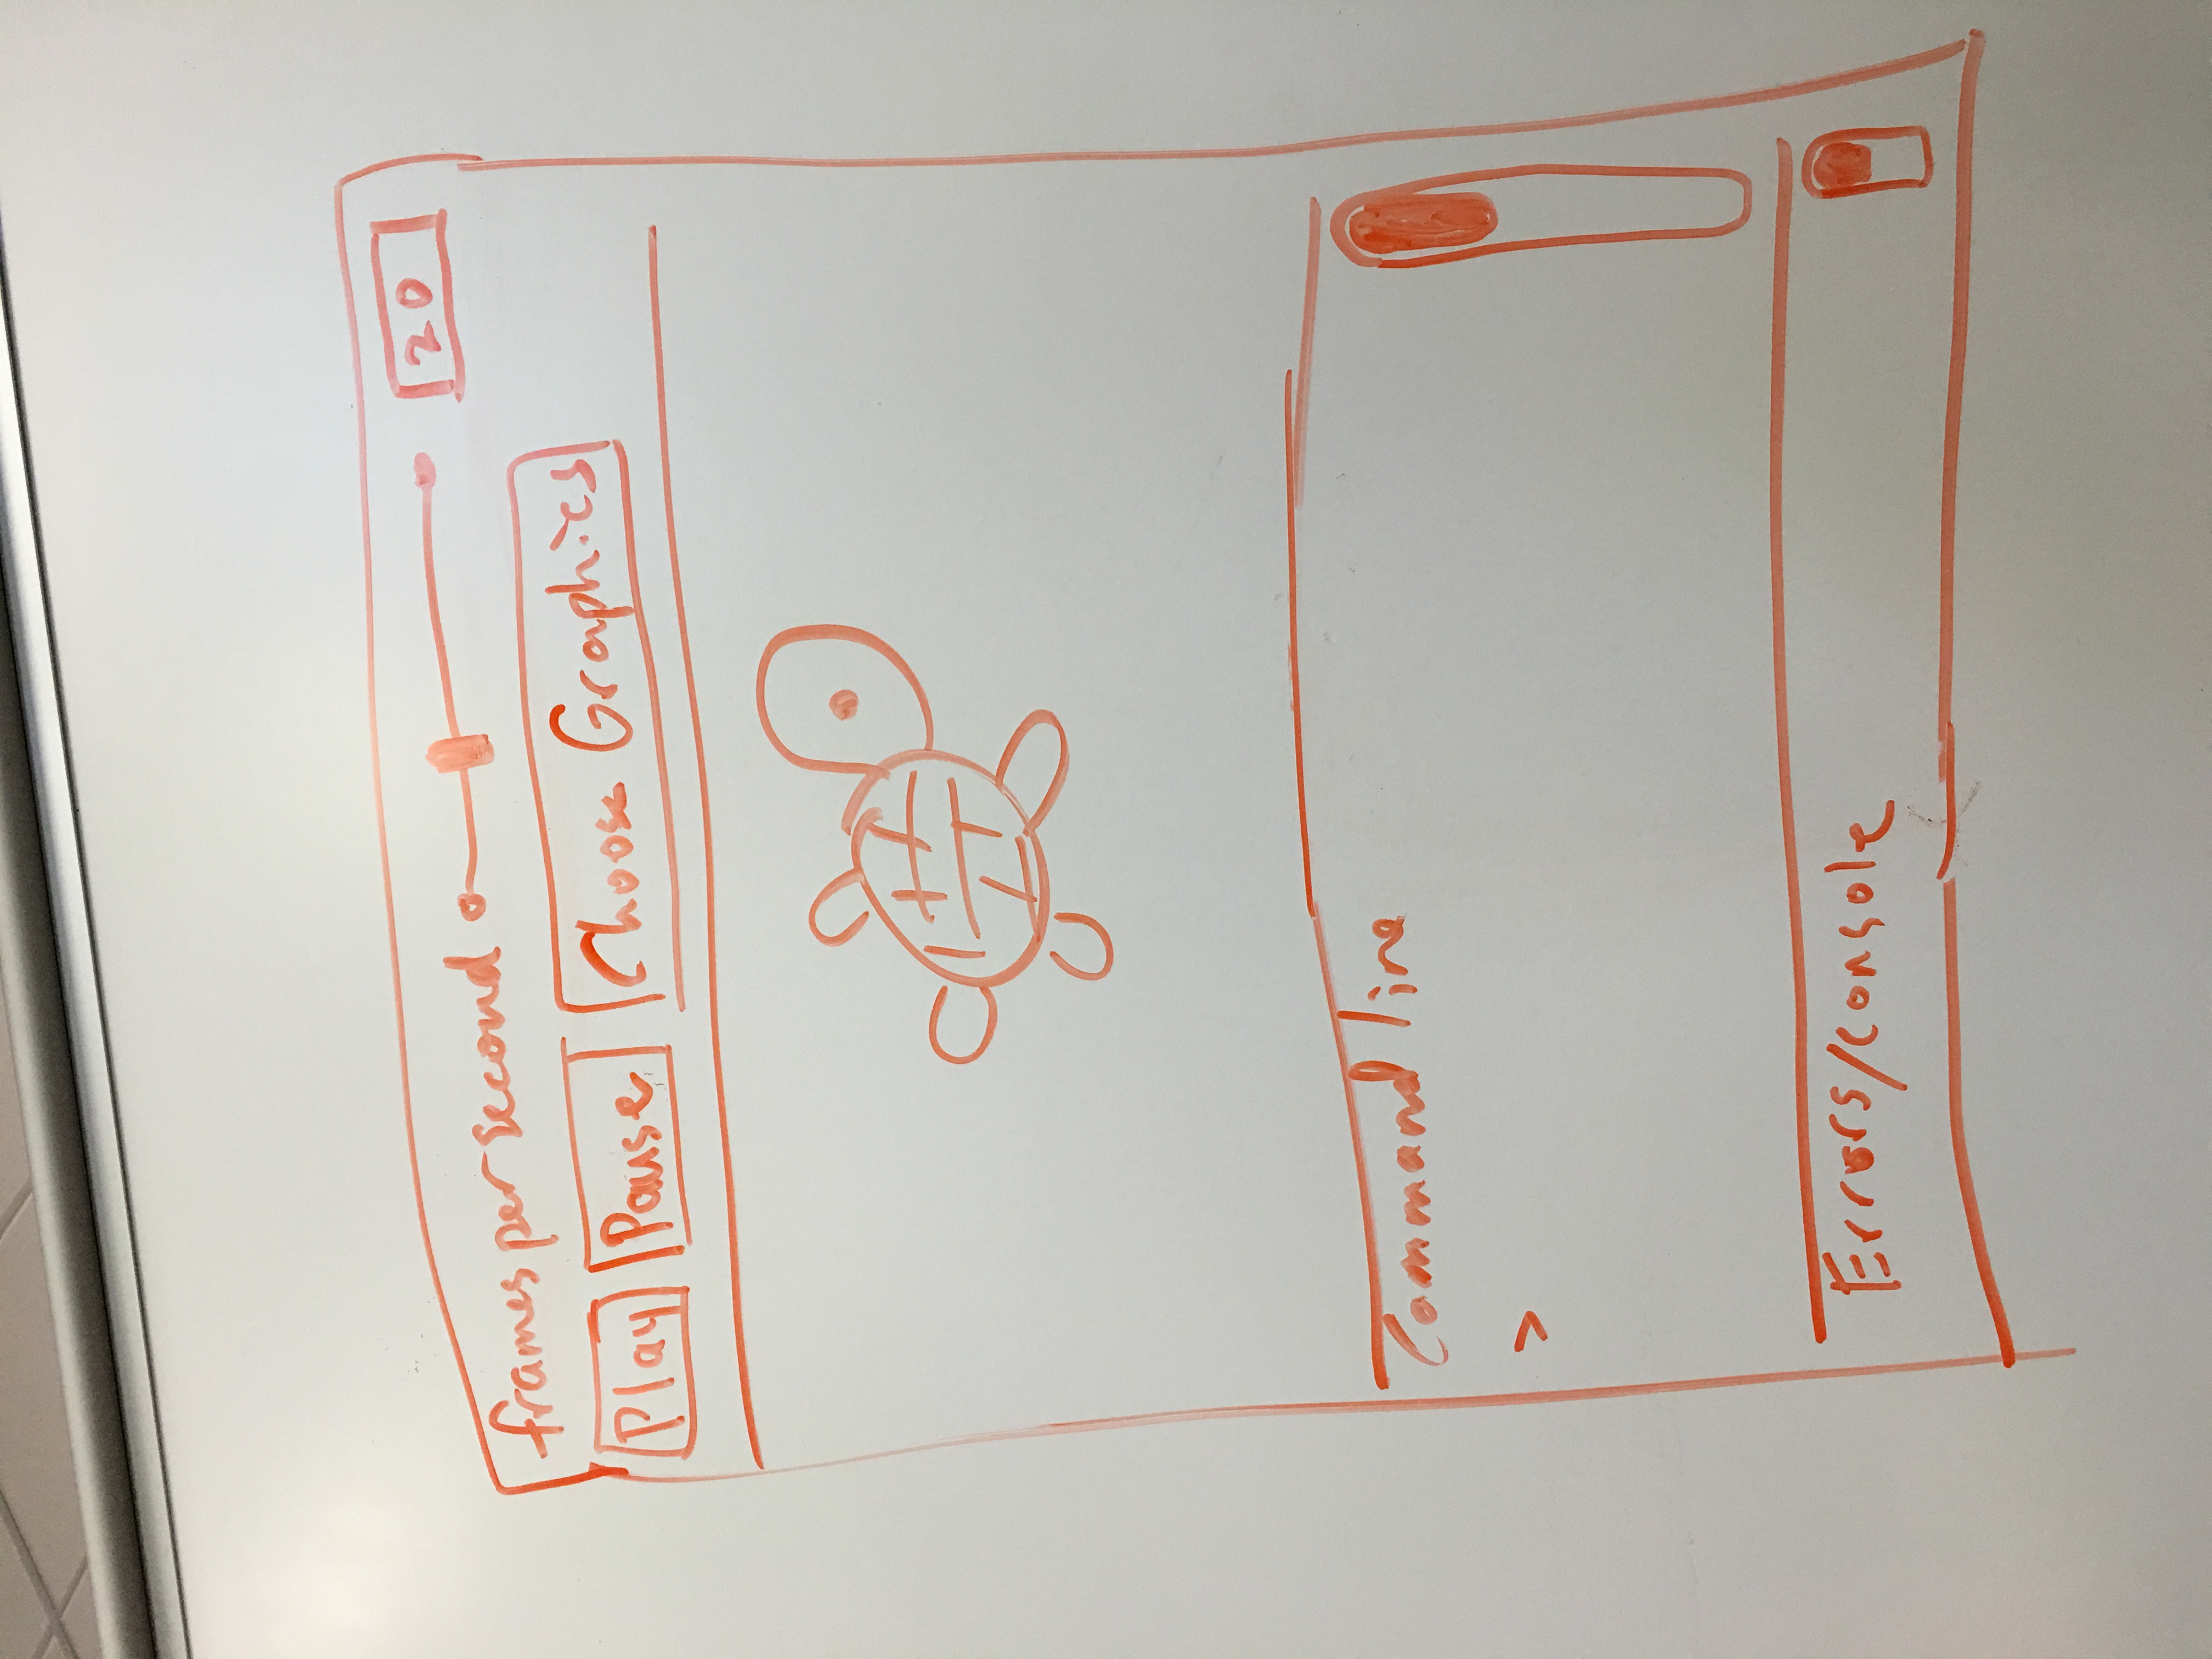 frames per second 20
Play Pause Choose Graphics
Command line
>
Errors/console